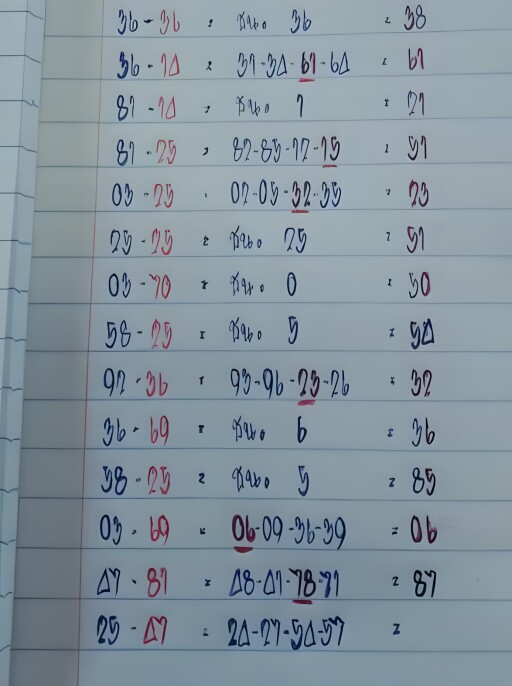 36 - 36 = 36 = 38
36 - 14 = 31-34-61-64 = 61
81 - 14 = 1 = 21
81 - 25 = 82-85-12-15 = 51
03 - 25 = 02-05-32-35 = 23
25 - 25 = 25 = 51
03 - 70 = 0 = 50
58 - 25 = 5 = 54
92 - 36 = 93-96-23-26 = 32
36 - 69 = 6 = 36
58 - 25 = 5 = 85
03 - 69 = 06-09-36-39 = 06
47 - 81 = 48-41-78-71 = 87
25 - 47 = 24-27-54-57 =